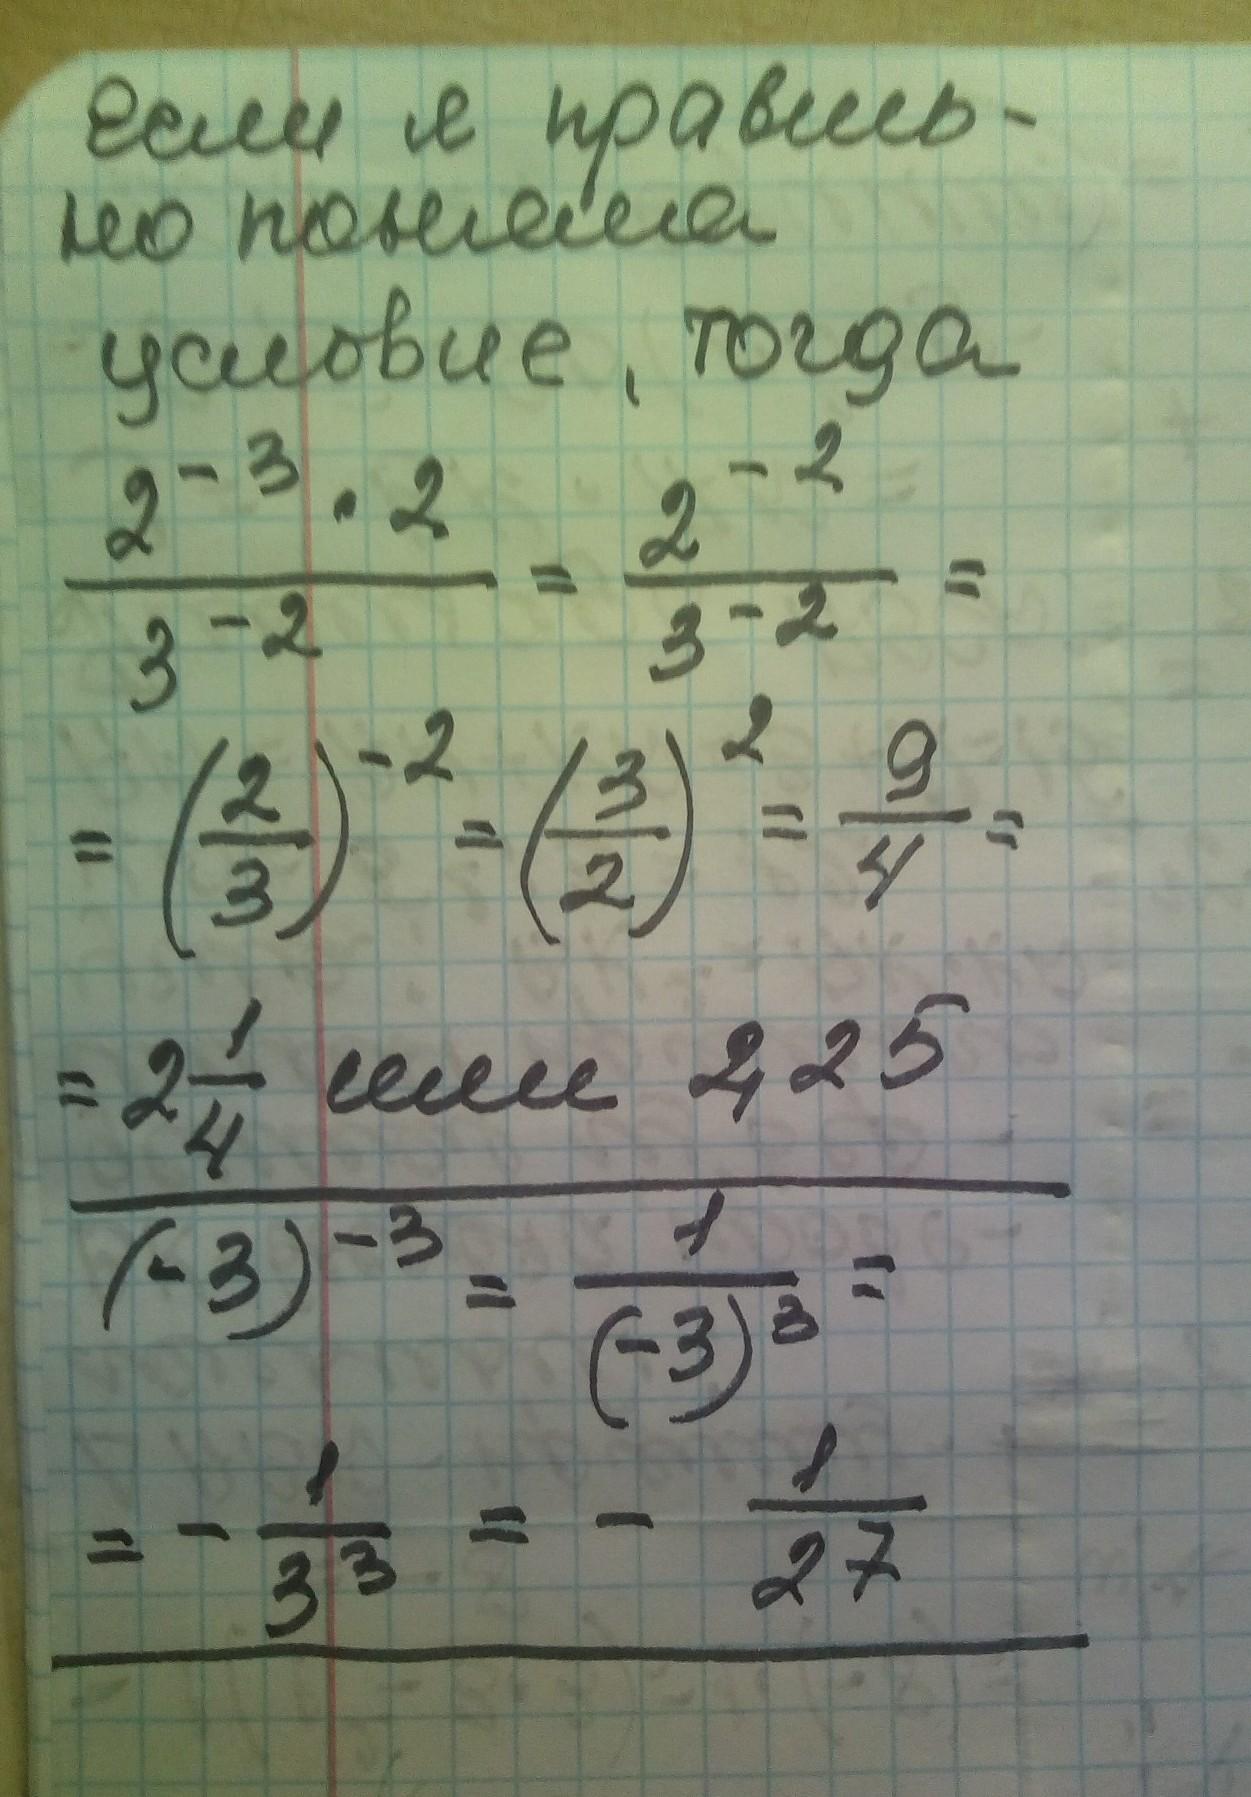 Если я правиль-
но поняла
условие, тогда
\frac{2^{-3} \cdot 2}{3^{-2}} = \frac{2^{-2}}{3^{-2}} =
= \left(\frac{2}{3}\right)^{-2} = \left(\frac{3}{2}\right)^{2} = \frac{9}{4} =
= 2\frac{1}{4} или 2,25
(-3)^{-3} = \frac{1}{(-3)^{3}} =
= -\frac{1}{3^{3}} = -\frac{1}{27}